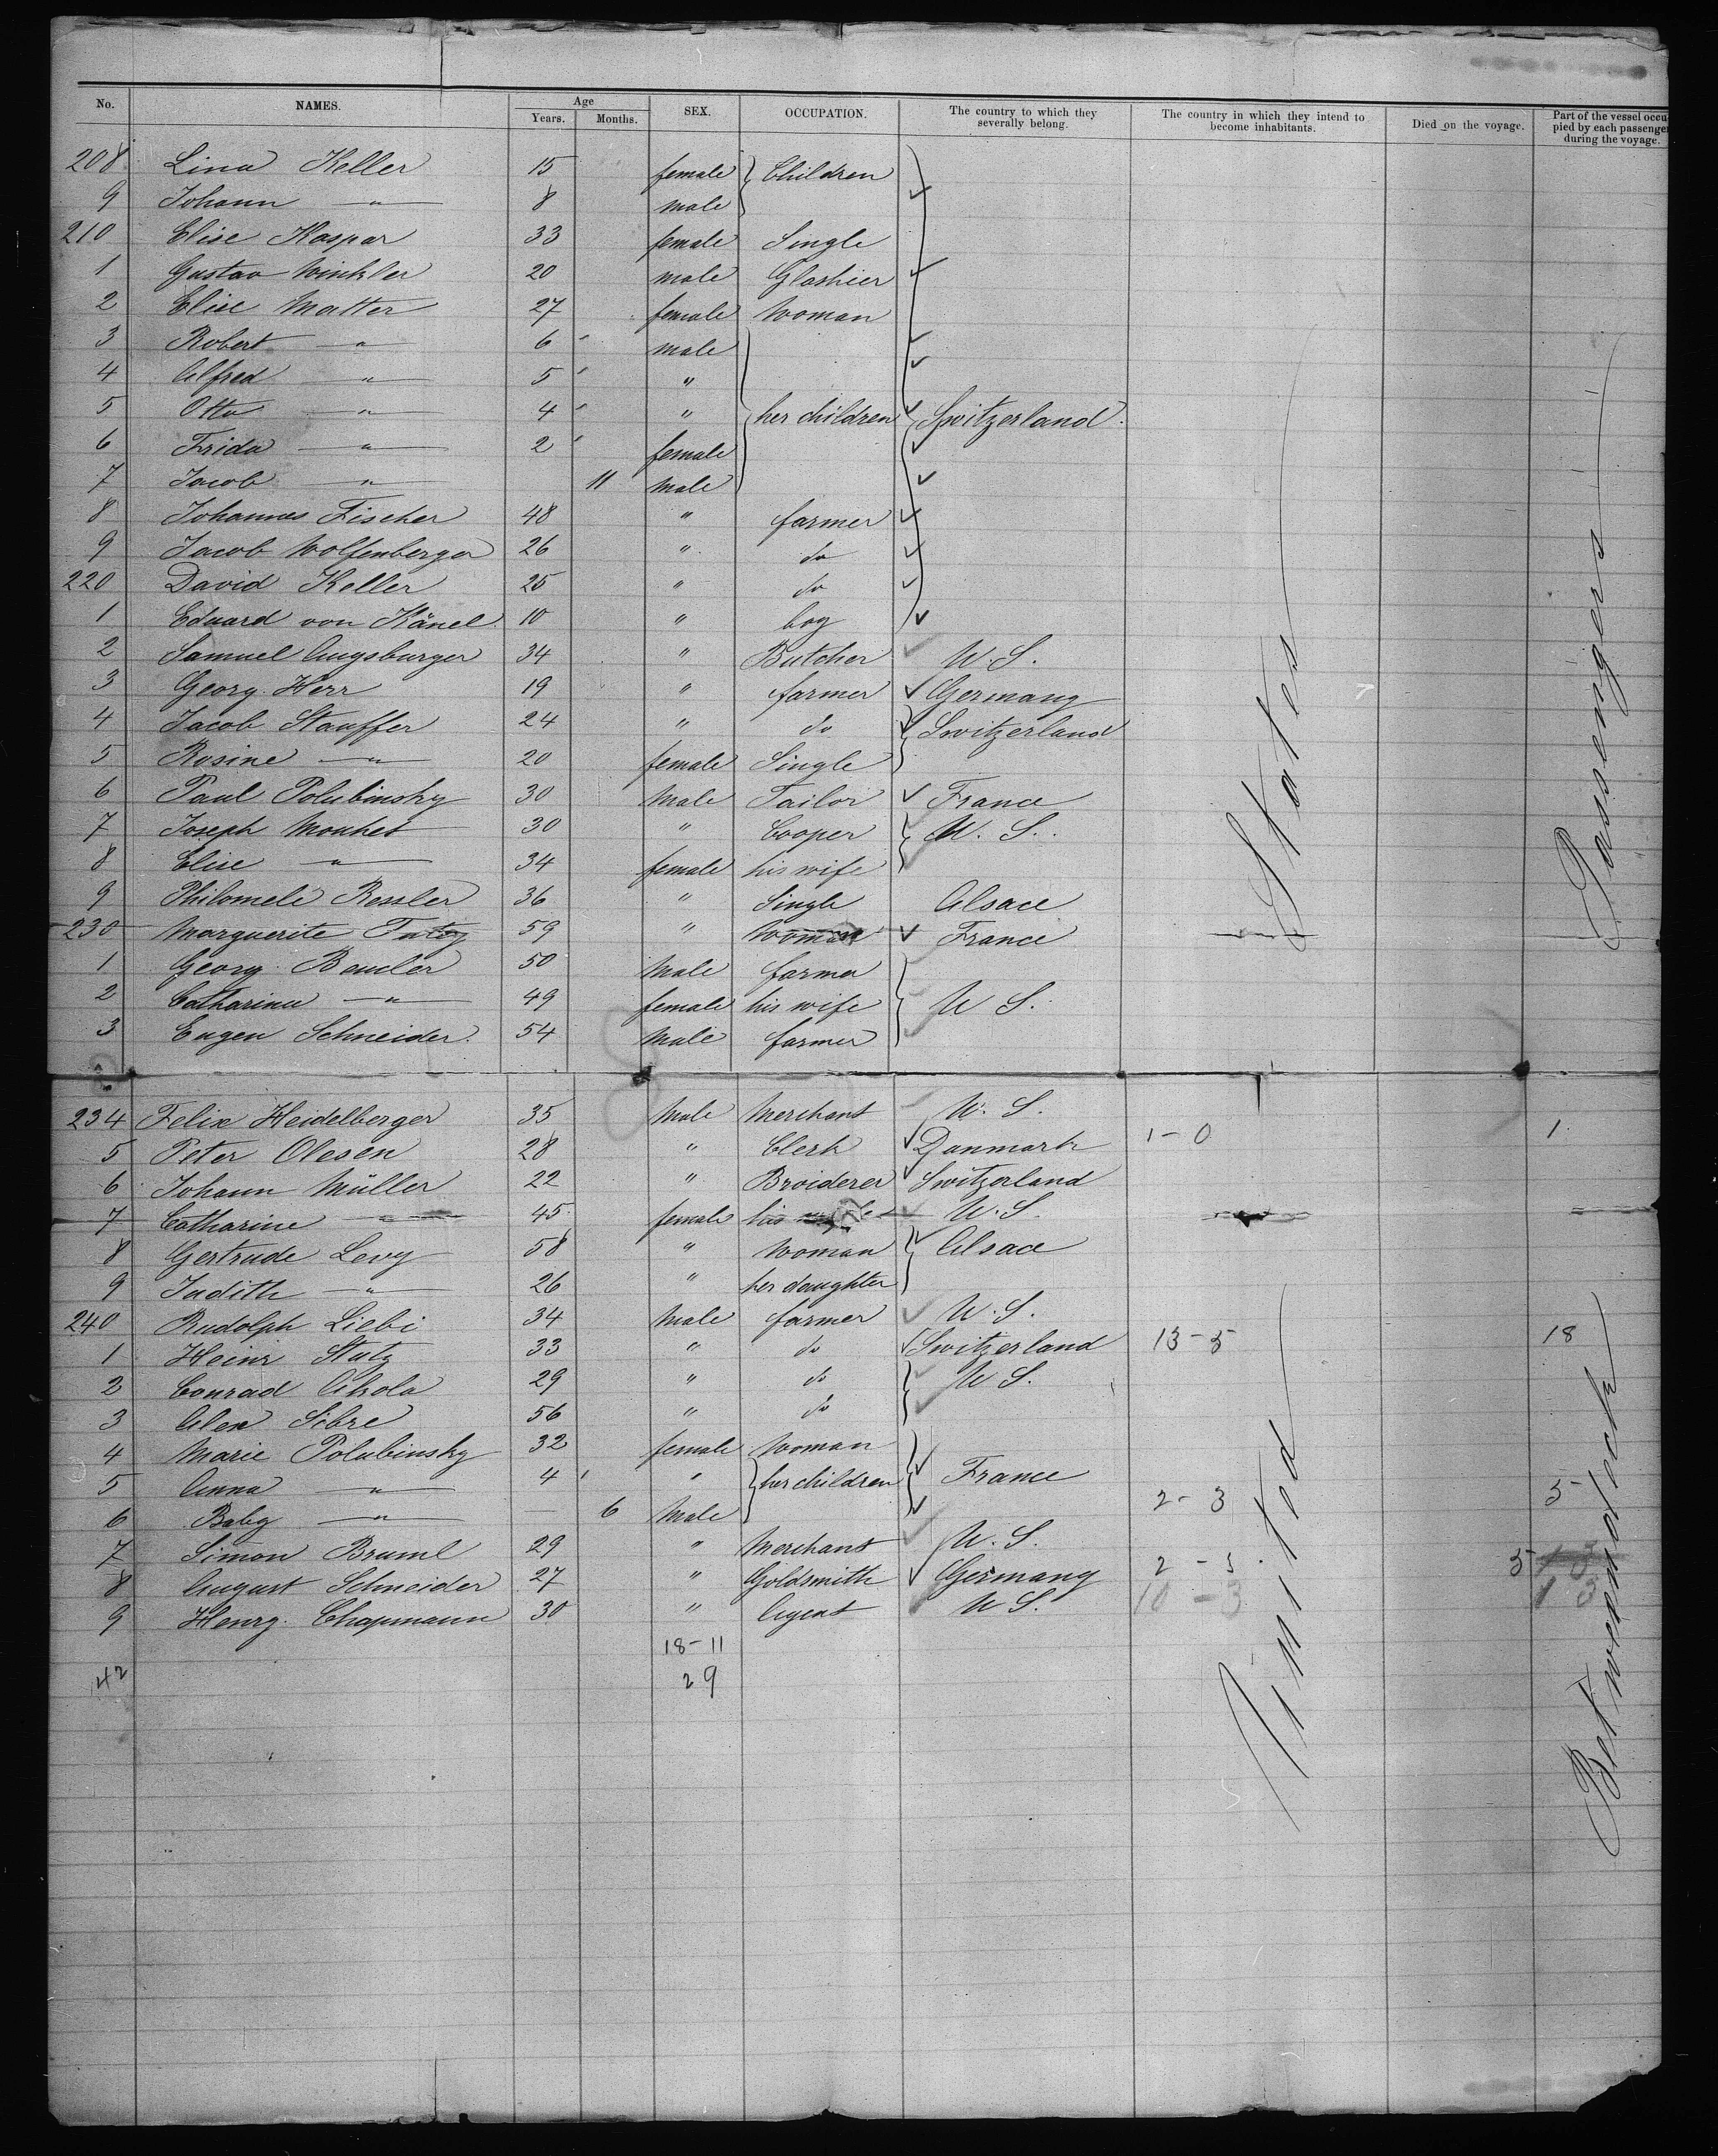 No. NAMES. Age Years. Months. SEX. OCCUPATION. The country to which they severally belong. The country in which they intend to become inhabitants. Died on the voyage. Part of the vessel occupied by each passenger during the voyage.
208 Lina Keller 15 female Children
9 Johann " 8 male
210 Elise Kaspar 33 female Single
1 Gustav Winkler 20 male Glashier
2 Elise Matter 27 female Woman
3 Robert " 6 male
4 Alfred " 5 "
5 Otto " 4 " her children Switzerland
6 Frida " 2 female
7 Jacob " 11 male
8 Johannes Fischer 48 " farmer
9 Jacob Wolfenberger 26 " do
220 David Keller 25 " do
1 Eduard von Känel 10 " boy
2 Samuel Augsburger 34 " Butcher U. S.
3 Georg Herr 19 " farmer Germany
4 Jacob Stauffer 24 " do Switzerland
5 Rosine " 20 female Single
6 Paul Polubinsky 30 Male Tailor France
7 Joseph Mouhet 30 " Cooper U. S.
8 Elise " 34 female his wife
9 Philomele Ressler 36 " Single Alsace
230 Marguerite 59 " Woman France
1 Georg Beucler 50 Male farmer
2 Catharina " 49 female his wife U S.
3 Eugen Schneider. 54 Male farmer
234 Felix Heidelberger 35 Male Merchant U. S.
5 Peter Olesen 28 " Clerk Danmark 1-0 1
6 Johann Müller 22 " Broiderer Switzerland
7 Catharine " 45 female his U. S.
8 Gertrude Levy 58 " Woman Alsace
9 Judith " 26 " her daughter
240 Rudolph Liebi 34 Male farmer U. S.
1 Heinr Stutz 33 " do Switzerland 13-5 18
2 Conrad Ahola 29 " do U S.
3 Alex Sibre 56 " do
4 Marie Polubinsky 32 female Woman
5 Anna " 4 " her children France
6 Baby " 6 Male 2-3 5
7 Simon Bruml 29 " Merchant U. S.
8 August Schneider 27 " Goldsmith Germany 2-3 5
9 Henry Chapmann 30 " Agent U S. 10-3 13
18-11
42 29
United States
Betweendeck Passengers